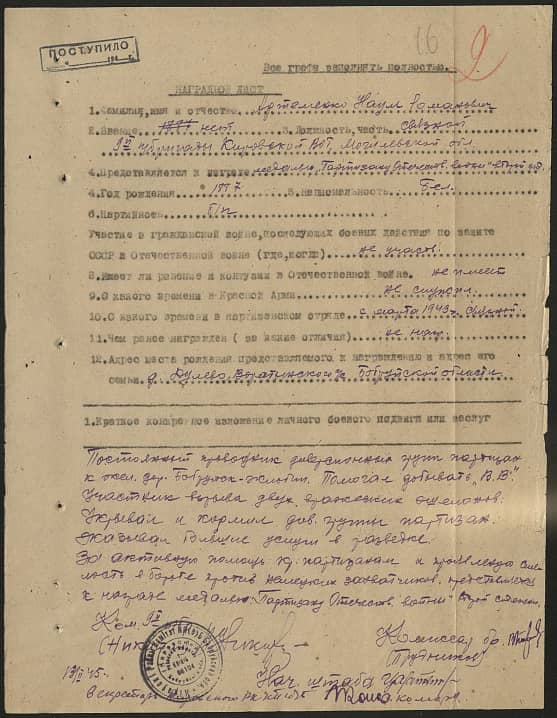 ПОСТУПИЛО
16
Все графы заполнять полностью.
НАГРАДНОЙ ЛИСТ
1.Фамилия,имя и отчество Артеменко Наум Романович
2.Звание нет 3.Должность,часть связной
9й убригады Кировской ВОГ, Могилевской обл.
4.Представляется к награде медалью "Партизану Отечеств. войны"
4.Год рождения 1887 5.Национальность Бел.
6.Партийность б/п
Участие в гражданской войне,последующих боевых действиях по защите
СССР в Отечественной войне (где,когда) не участв.
8.Имеет ли ранение и контузии в Отечественной войне. не имеет
9.С какого времени в Красной Армии не служил.
10.С какого времени в партизанском отряде. с марта 1943г. связной.
11.Чем ранее награжден ( за какие отличия) не наг.
12.Адрес места рождения представляемого к награждению и адрес его
семьи. д. Дулево, Бобруйской области
1.Краткое конкретное изложение личного боевого подвига или заслуг
Постоянный проводник диверсионных групп партизан
к жел. дор. Бобруйск-Жлобин. Помогал добывать "В.В."
Участник взрыва двух вражеских эшелонов.
Укрывал и кормил див. группы партизан.
Оказывал большие услуги в разведке.
За активную помощь кр. партизанам и проявленную сме-
лость в борьбе против немецких захватчиков, представляется
к награде медалью "Партизану Отечеств. войны" второй степени.
Ком. 9й
Комиссар бр.
(Прудников)
Нач. штаба
13/II 45г.